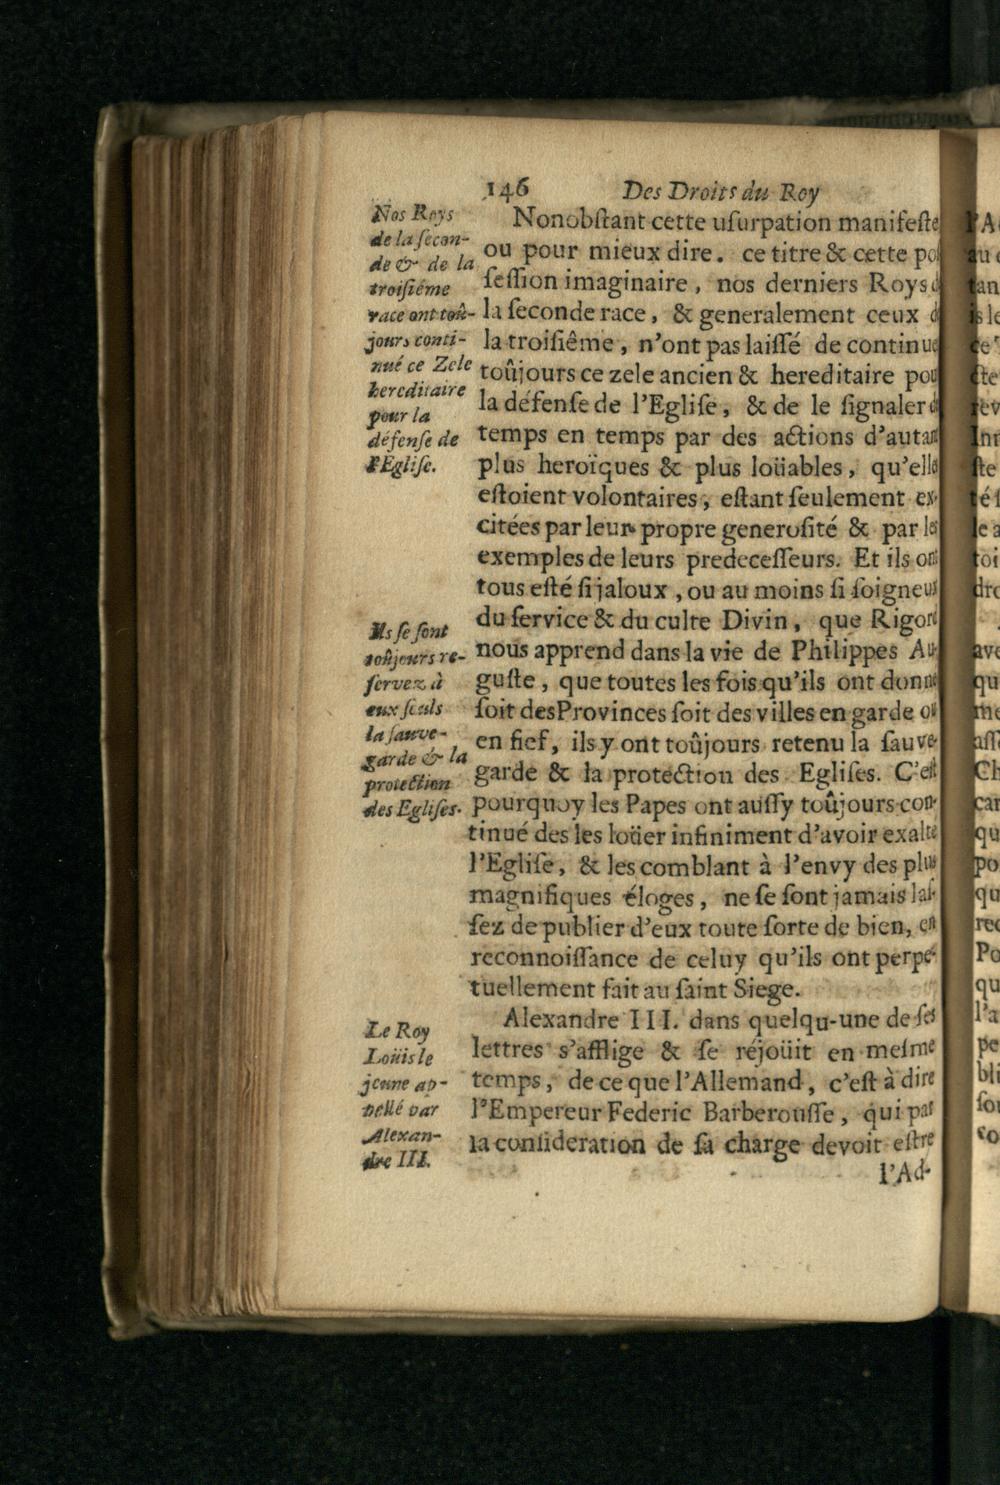 146 Des Droits du Roy
Nos Roys
de la ſecon-
de & de la
troiſiéme
race ont toû-
jours conti-
nué ce Zele
hereditaire
pour la
défenſe de
l'Egliſe.
Nonobſtant cette uſurpation manifeſte
ou pour mieux dire. ce titre & cette poſ
ſeſſion imaginaire, nos derniers Roys d
la ſeconde race, & generalement ceux d
la troiſiême, n'ont pas laiſſé de continue
toûjours ce zele ancien & hereditaire pou
la défenſe de l'Egliſe, & de le ſignaler d
temps en temps par des actions d'autan
plus heroïques & plus loüables, qu'elle
eſtoient volontaires, eſtant ſeulement ex-
citées par leur propre generoſité & par les
exemples de leurs predeceſſeurs. Et ils ont
tous eſté ſi jaloux, ou au moins ſi ſoigneux
du ſervice & du culte Divin, que Rigord
nous apprend dans la vie de Philippes Au-
guſte, que toutes les fois qu'ils ont donné
ſoit desProvinces ſoit des villes en garde ou
en fief, ils y ont toûjours retenu la ſauve-
garde & la protection des Egliſes. C'eſt
pourquoy les Papes ont auſſy toûjours con-
tinué des les loüer infiniment d'avoir exalté
l'Egliſe, & les comblant à l'envy des plus
magnifiques éloges, ne ſe ſont jamais laſ-
ſez de publier d'eux toute ſorte de bien, en
reconnoiſſance de celuy qu'ils ont perpe-
tuellement fait au ſaint Siege.
Ils ſe ſont
toûjours re-
ſervez à
eux ſeuls
la ſauve-
garde & la
protection
des Egliſes.
Alexandre III. dans quelqu-une de ſes
lettres s'afflige & ſe réjoüit en meſme
temps, de ce que l'Allemand, c'eſt à dire
l'Empereur Federic Barberouſſe, qui par
la conſideration de ſa charge devoit eſtre
Le Roy
Loüis le
jeune ap-
pellé par
Alexan-
dre III.
l'Ad-